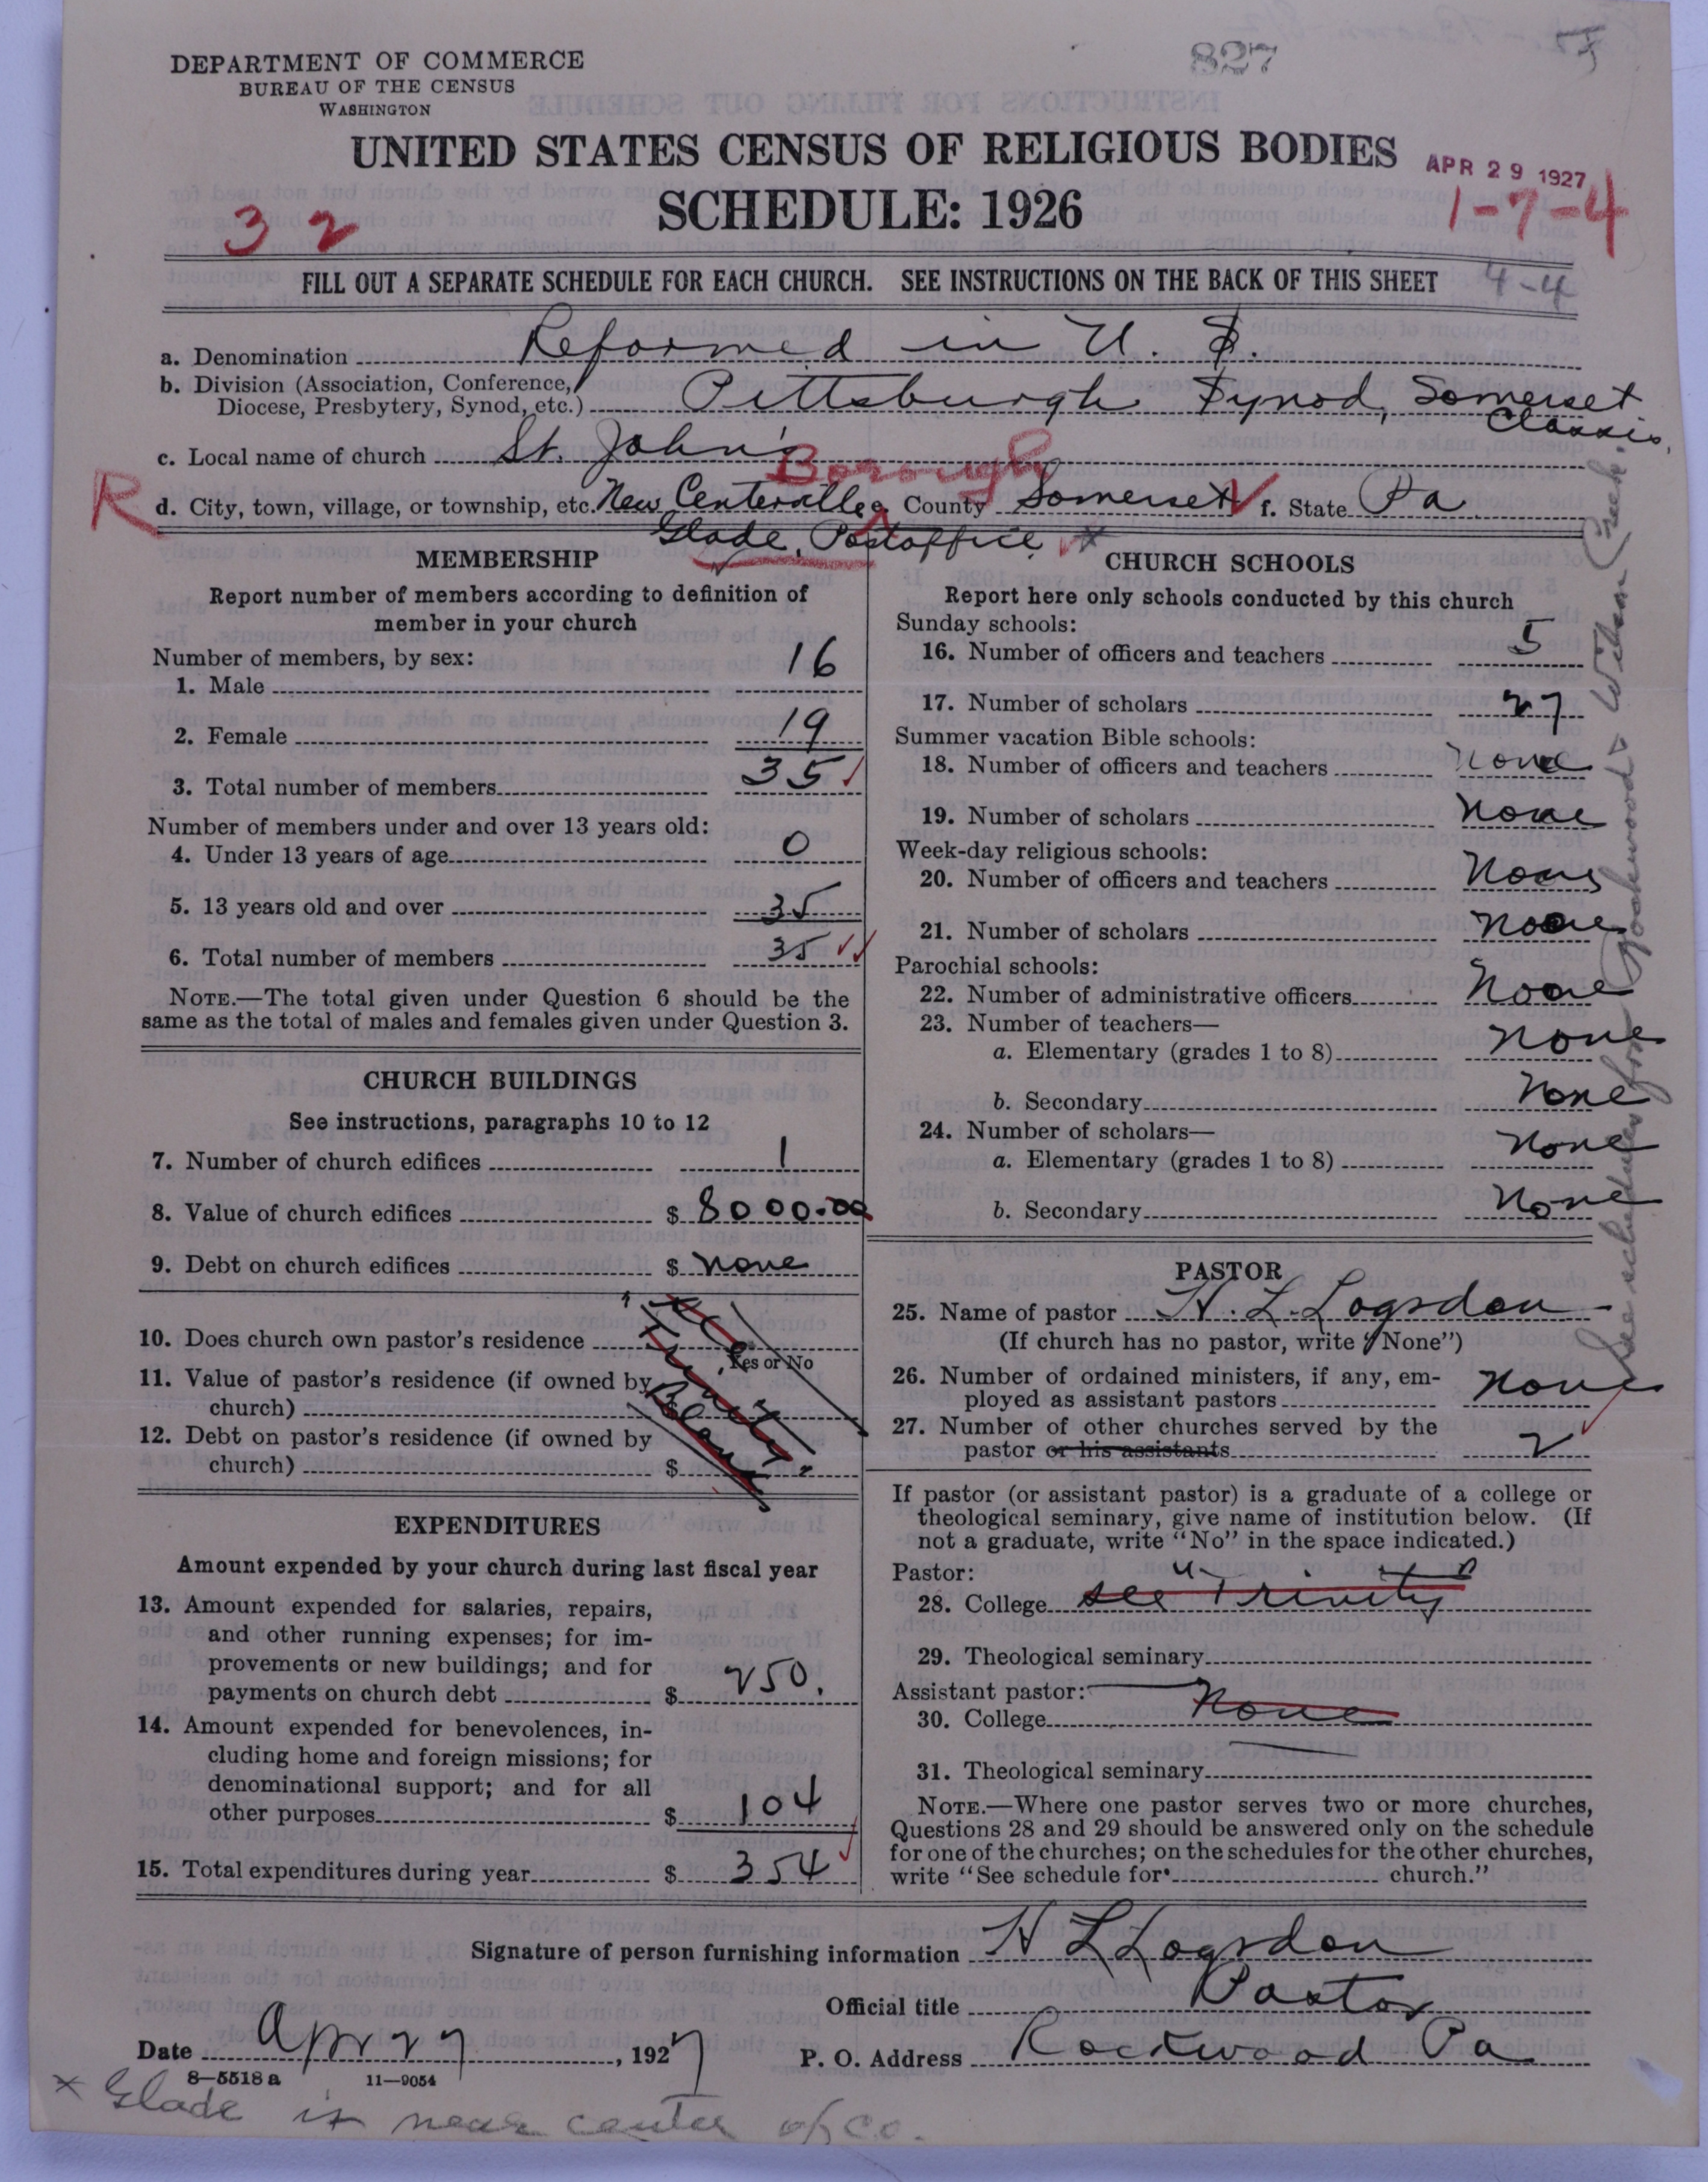 DEPARTMENT OF COMMERCE
BUREAU OF THE CENSUS
WASHINGTON
827
UNITED STATES CENSUS OF RELIGIOUS BODIES
APR 29 1927
SCHEDULE: 1926
32
1-7-4
FILL OUT A SEPARATE SCHEDULE FOR EACH CHURCH. SEE INSTRUCTIONS ON THE BACK OF THIS SHEET
4-4
a. Denomination Reformed in U. S.
b. Division (Association, Conference, Diocese, Presbytery, Synod, etc.) Pittsburgh Synod, Somerset Classis.
c. Local name of church St. John's
Borough
R
d. City, town, village, or township, etc. New Centerville e. County Somerset f. State Pa
Glade, Postoffice *
MEMBERSHIP
Report number of members according to definition of
member in your church
Number of members, by sex:
1. Male 16
2. Female 19
3. Total number of members 35
Number of members under and over 13 years old:
4. Under 13 years of age 0
5. 13 years old and over 35
6. Total number of members 35
NOTE.—The total given under Question 6 should be the
same as the total of males and females given under Question 3.
CHURCH BUILDINGS
See instructions, paragraphs 10 to 12
7. Number of church edifices 1
8. Value of church edifices $ 8000.00
9. Debt on church edifices $ none
10. Does church own pastor's residence
Yes or No
11. Value of pastor's residence (if owned by
church) $
12. Debt on pastor's residence (if owned by
church) $
Trinity
EXPENDITURES
Amount expended by your church during last fiscal year
13. Amount expended for salaries, repairs,
and other running expenses; for im-
provements or new buildings; and for
payments on church debt $ 250.
14. Amount expended for benevolences, in-
cluding home and foreign missions; for
denominational support; and for all
other purposes $ 104
15. Total expenditures during year $ 354
CHURCH SCHOOLS
Report here only schools conducted by this church
Sunday schools:
16. Number of officers and teachers 5
17. Number of scholars 27
Summer vacation Bible schools:
18. Number of officers and teachers none
19. Number of scholars None
Week-day religious schools:
20. Number of officers and teachers None
21. Number of scholars None
Parochial schools:
22. Number of administrative officers None
23. Number of teachers—
a. Elementary (grades 1 to 8) None
b. Secondary None
24. Number of scholars—
a. Elementary (grades 1 to 8) None
b. Secondary None
PASTOR
25. Name of pastor H. L. Logsdon
(If church has no pastor, write "None")
26. Number of ordained ministers, if any, em-
ployed as assistant pastors None
27. Number of other churches served by the
pastor or his assistants 2
If pastor (or assistant pastor) is a graduate of a college or
theological seminary, give name of institution below. (If
not a graduate, write "No" in the space indicated.)
Pastor:
28. College see "Trinity"
29. Theological seminary
Assistant pastor:
30. College None
31. Theological seminary
NOTE.—Where one pastor serves two or more churches,
Questions 28 and 29 should be answered only on the schedule
for one of the churches; on the schedules for the other churches,
write "See schedule for church."
See schedules for
Signature of person furnishing information H L Logsdon
Official title Pastor
Date Apr 27, 1927
P. O. Address Rockwood Pa
8—5518 a 11—9054
* Glade is near center of Co.